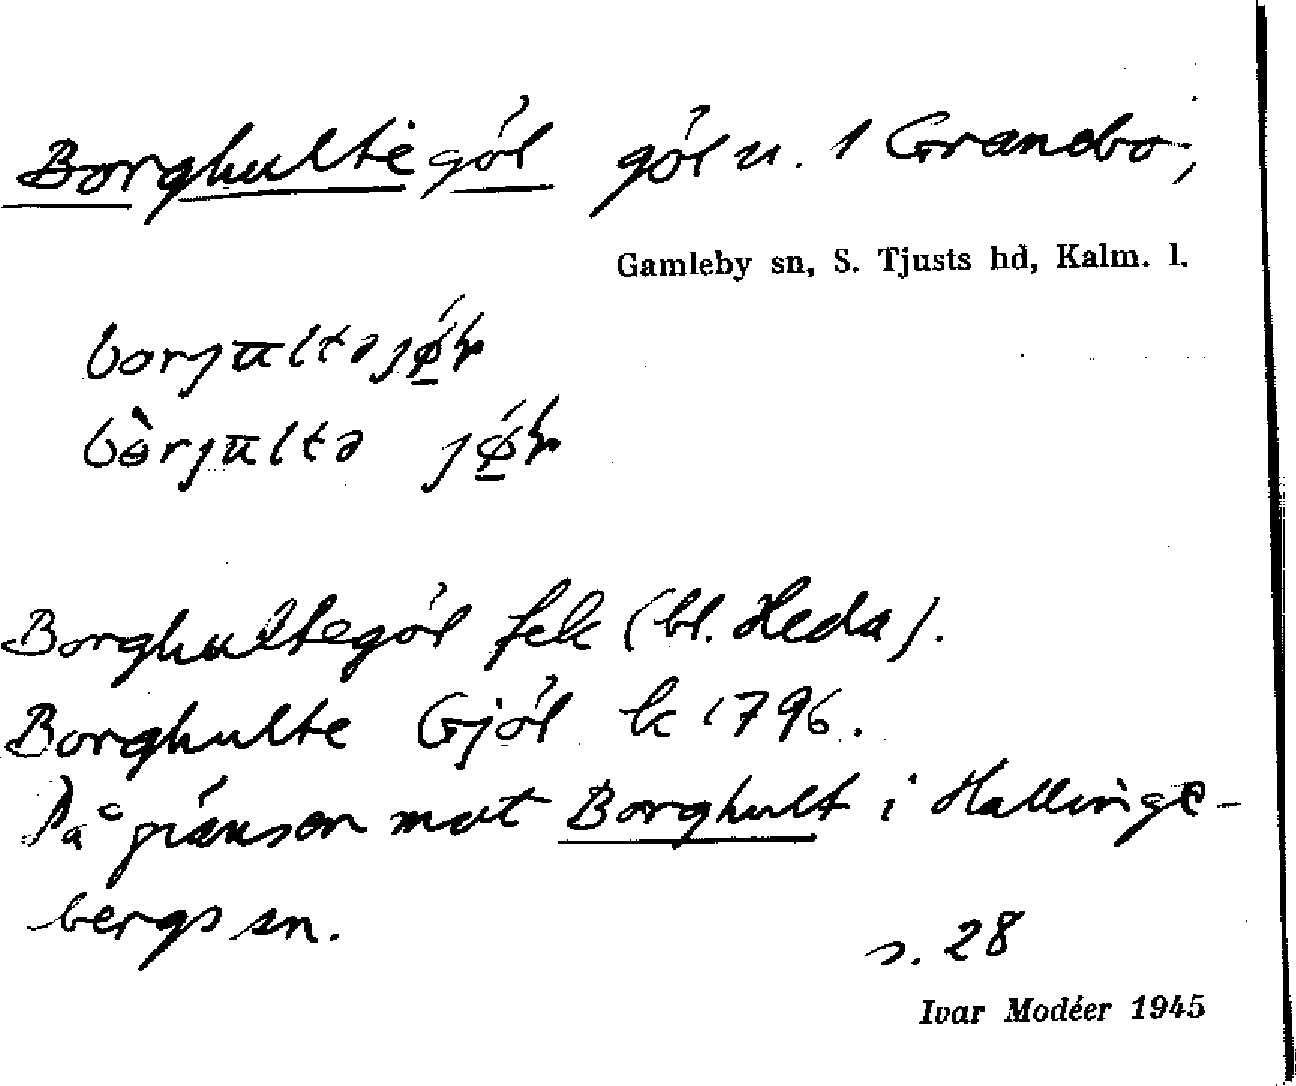 Borghultegöl göl u. 1 Granebo,
Gamleby sn, S. Tjusts hd, Kalm. l.
Borghultegöl fek (bl. Heda).
Borghulte Gjöl k 1796.
På gränsen mot Borghult i Hallinge-
bergs sn.
s. 28
Ivar Modéer 1945